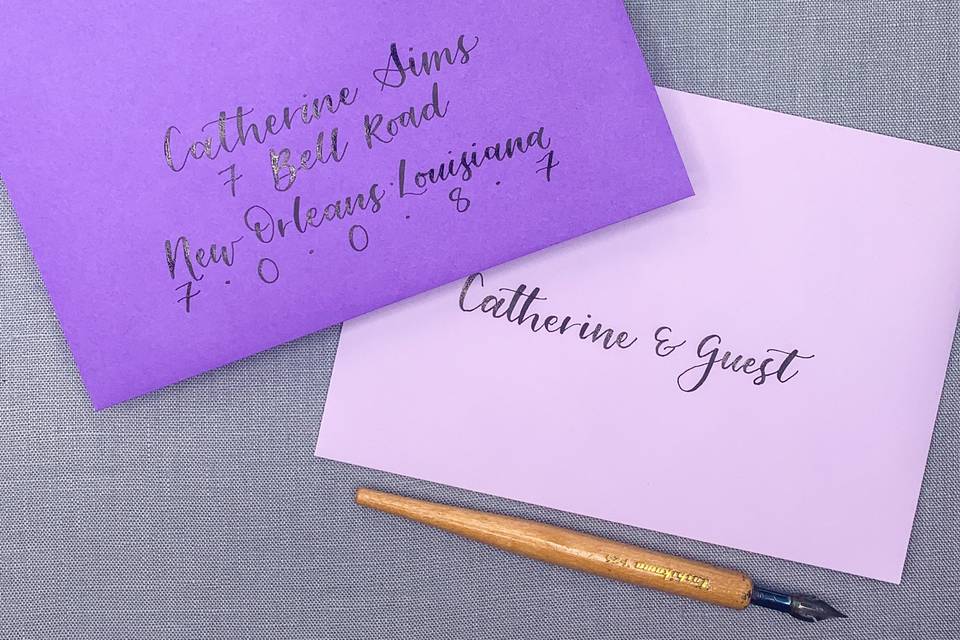 Catherine Sims
7 Bell Road
New Orleans Louisiana
7 · 0 · 0 · 8 · 7
Catherine & Guest